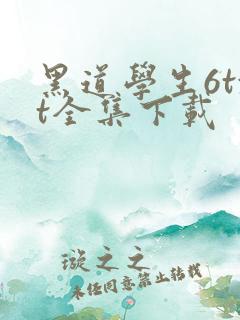 黑道學生6tx
t全集下載
璇之之
未经同意禁止转载